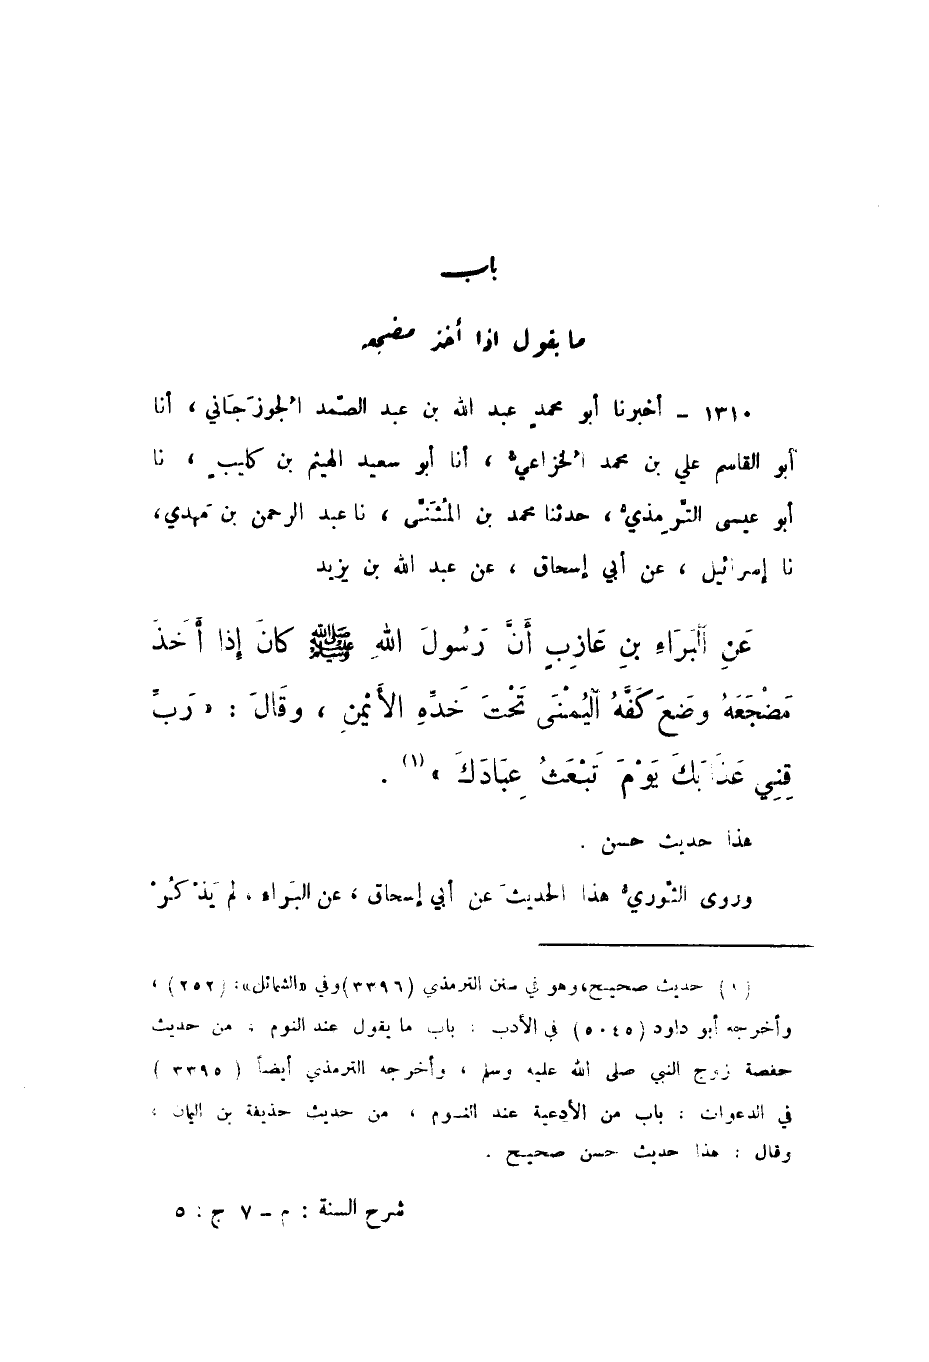 باب
ما يقول اذا أخذ مضجعه
١٣١٠ – أخبرنا أبو محمدٍ عبد الله بن عبد الصّمد الْجوزَجَاني ، أنا
أبو القاسم علي بن محمد الْخزاعيُّ ، أنا أبو سعيد الهيثم بن كليبٍ ، نا
أبو عيسى التِّرمذيُّ ، حدثنا محمد بن المُثَنَّى ، نا عبد الرحمن بن مَهدي،
نا إسرائيل ، عن أبي إسحاق ، عن عبد الله بن يزيد
عَنِ ٱلْبَرَاءِ بنِ عَازِبٍ أَنَّ رَسُولَ اللهِ ﷺ كانَ إِذا أَخَذَ
مَضْجَعَهُ وضَعَ كَفَّهُ ٱلْيُمْنَى تَحْتَ خَدِّهِ الأَيْمنِ ، وقَالَ : « رَبِّ
قِنِي عَذَابَكَ يَوْمَ تَبْعَثُ عِبَادَكَ » (١) .
هذا حديث حسن .
وروى الثّوريُّ هذا الحديثَ عن أبي إسحاق ، عن البَراء ، لم يَذْكُرْ
(١) حديث صحيح،وهو في سنن الترمذي (٣٣٩٦)وفي «الشمائل»: (٢٥٢) ،
وأخرجه أبو داود (٥٠٤٥) في الأدب : باب ما يقول عند النوم ، من حديث
حفصة زوج النبي صلى الله عليه وسلم ، وأخرجه الترمذي أيضاً ( ٣٣٩٥ )
في الدعوات : باب من الأدعية عند النوم ، من حديث حذيفة بن اليمان ،
وقال : هذا حديث حسن صحيح .
شرح السنة : م – ٧ ج : ٥